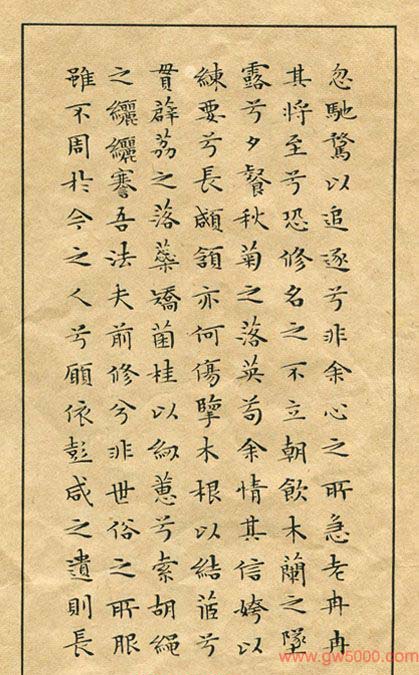 忽馳騖以追逐兮非余心之所急老冉冉
其將至兮恐修名之不立朝飲木蘭之墜
露兮夕餐秋菊之落英苟余情其信姱以
練要兮長顑頷亦何傷擥木根以結茝兮
貫薜荔之落蘂矯菌桂以紉蕙兮索胡繩
之纚纚謇吾法夫前修兮非世俗之所服
雖不周於今之人兮願依彭咸之遺則長
www.gw5000.com